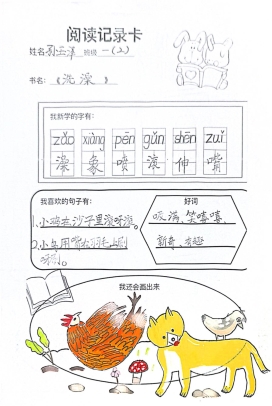 阅读记录卡
姓名 班级 一(2)
书名:《洗澡》
我新学的字有:
zǎo xiàng pēn gǔn shēn zuǐ
澡 象 喷 滚 伸 嘴
我喜欢的句子有:
1、小鸡在沙子里滚呀滚。
2、小鸟用嘴在羽毛上刷
呀刷。
好词
吸满、笑嘻嘻、
新奇、有趣
我还会画出来